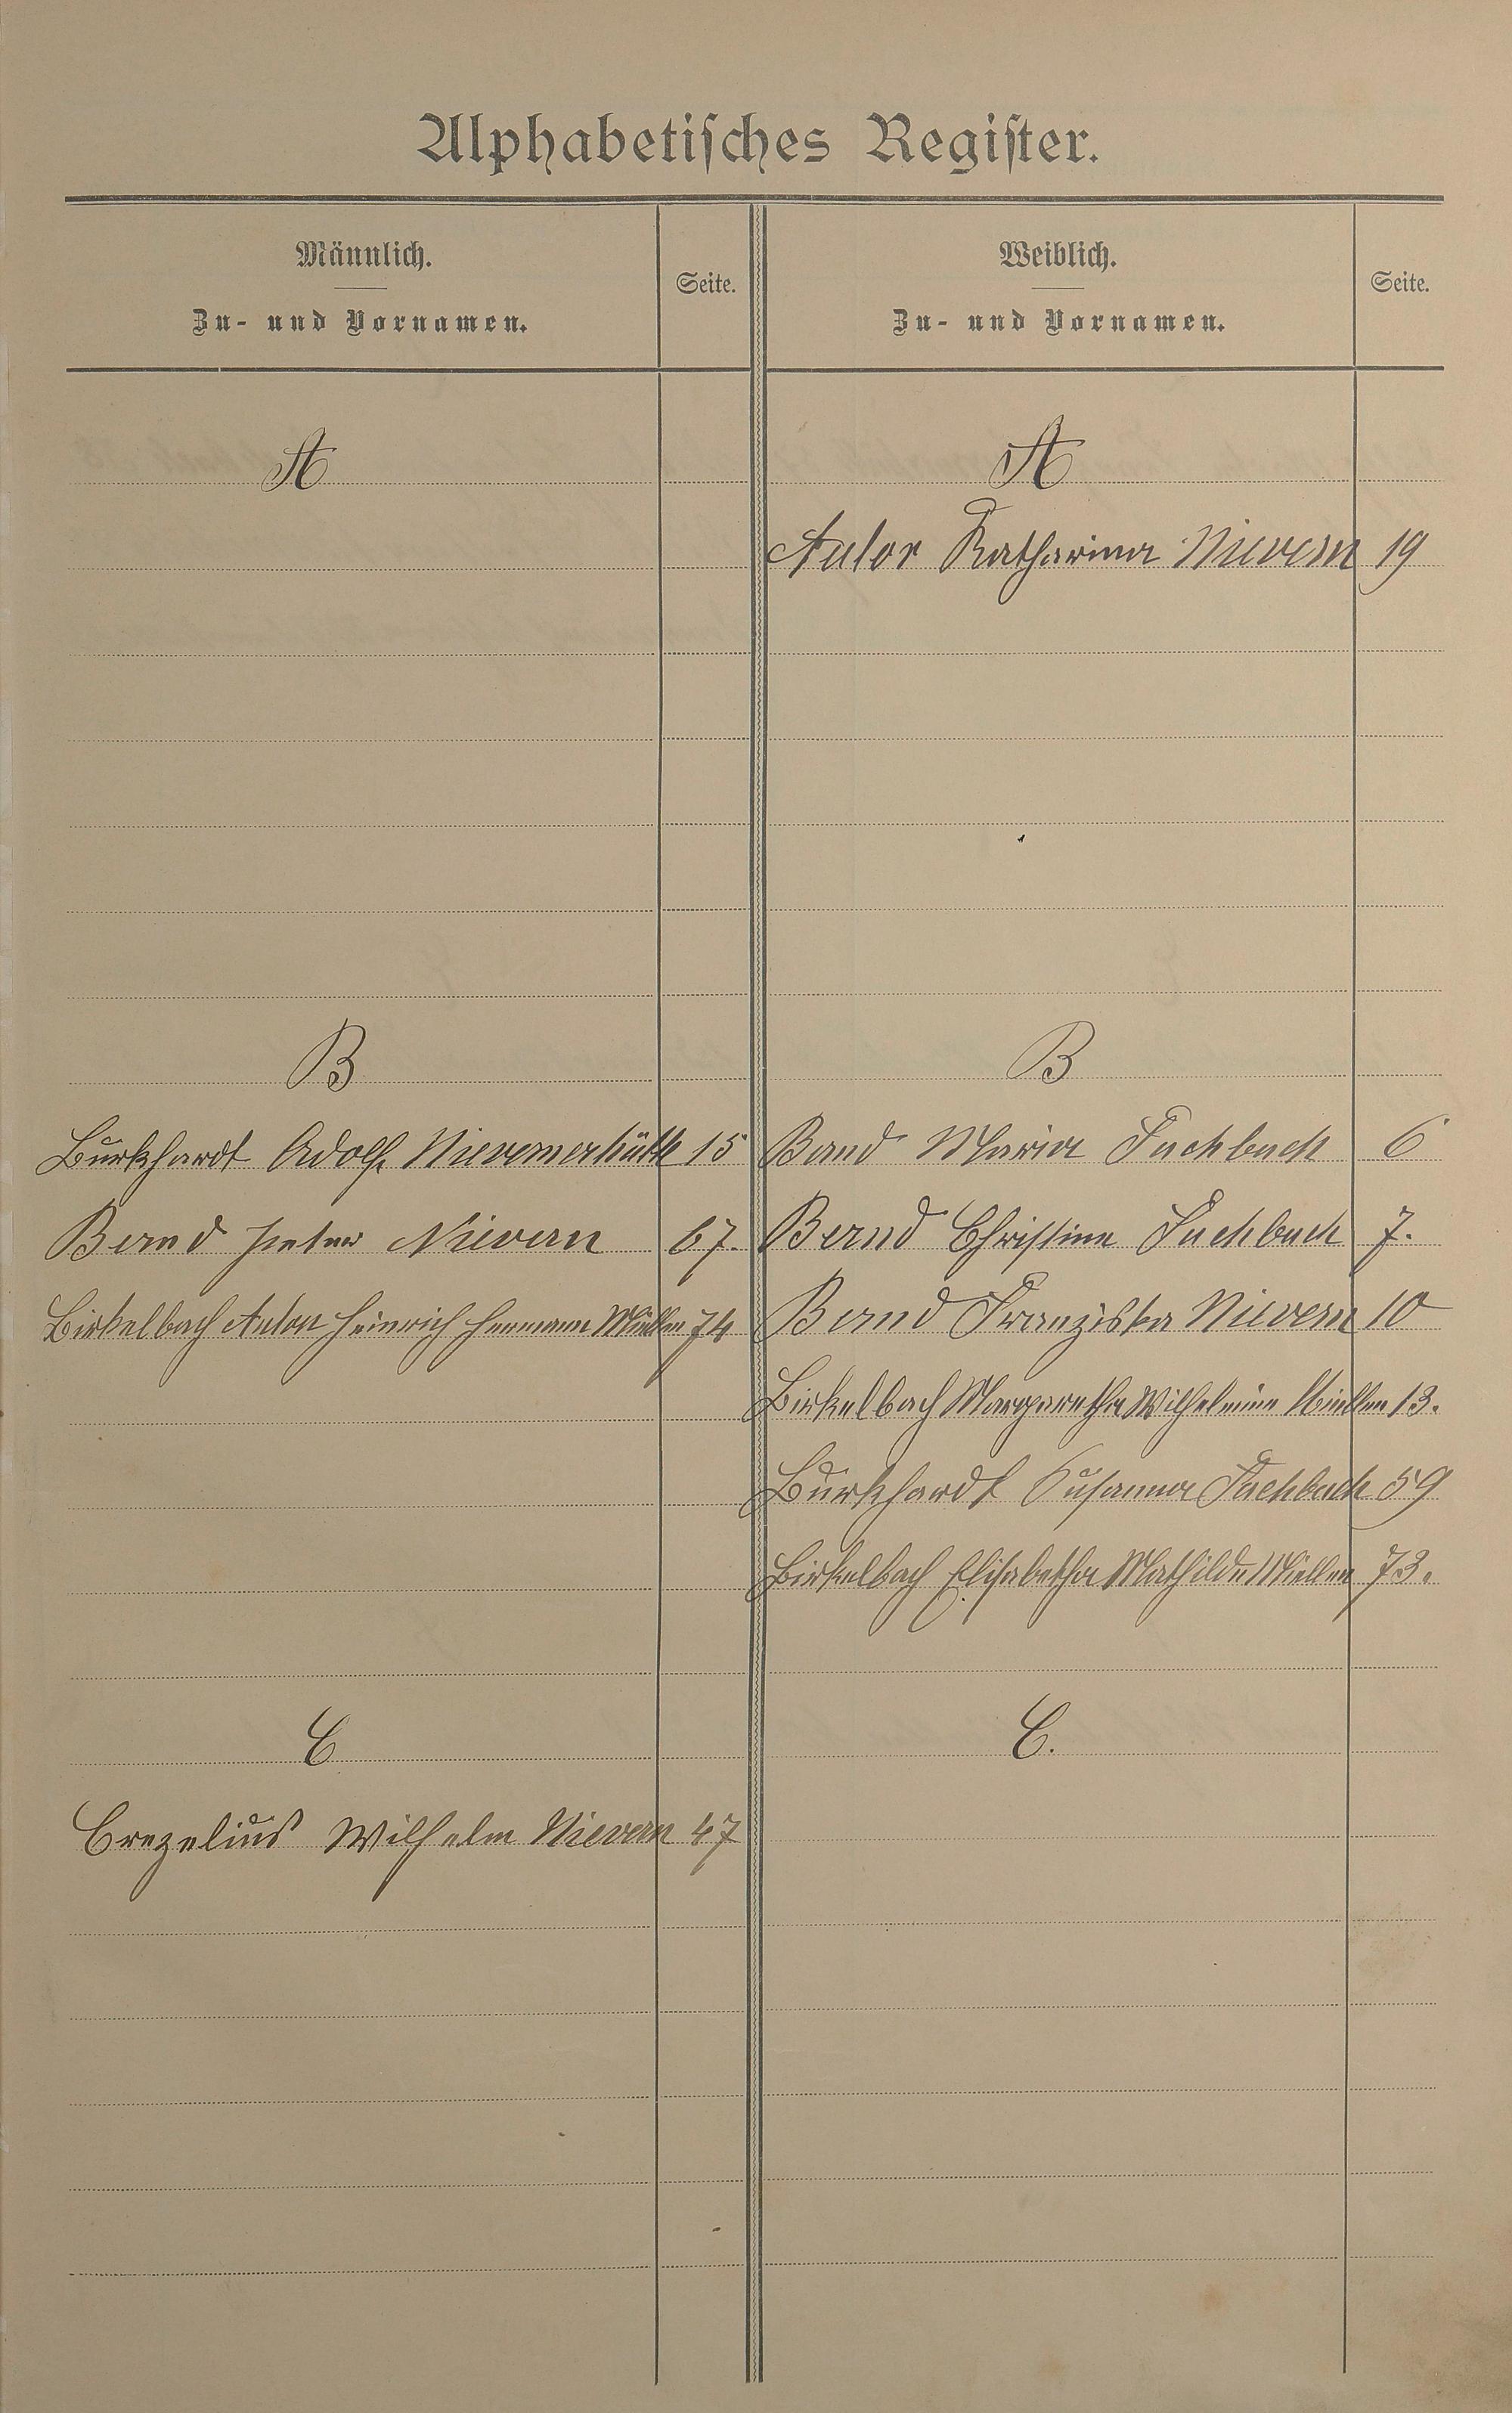 Alphabetisches Register.
Männlich.
Zu- und Vornamen.
Seite.
Weiblich.
Zu- und Vornamen.
Seite.
A
A
Anlor Katharina Nievern 19
B
B
Burkhardt Adolf Nievernerhütte 15
Band Maria Fachbach 6
Bernd Peter Nievern 67.
Bernd Christine Fachbach 7.
Birkelbach Anton Heinrich Hermann Miellen 74
Bernd Franziska Nievern 10
Birkelbach Margaretha Wilhelmine Miellen 13.
Burkhardt Susanna Fachbach 59
Birkelbach Elisabetha Mathilde Miellen 73.
C
C.
Crezelius Wilhelm Nievern 47